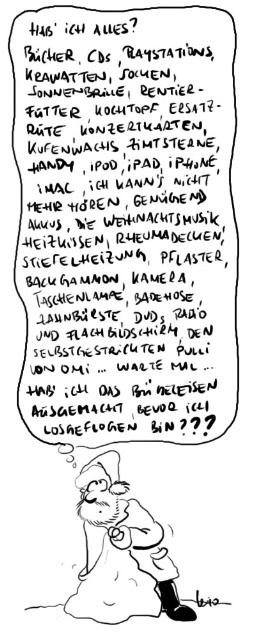 HAB' ICH ALLES?
BÜCHER, CDs, PLAYSTATIONS,
KRAWATTEN, SOCKEN,
SONNENBRILLE, RENTIER-
FUTTER, KOCHTOPF, ERSATZ-
RUTE, KONZERTKARTEN,
KUFENWACHS ZIMTSTERNE,
HANDY, iPOD, iPAD, iPHONE,
iMAC, ICH KANN'S NICHT
MEHR HÖREN, GENÜGEND
AKKUS, DIE WEIHNACHTSMUSIK,
HEIZKISSEN, RHEUMADECKEN,
STIEFELHEIZUNG, PFLASTER,
BACKGAMMON, KAMERA,
TASCHENLAMPE, BADEHOSE,
ZAHNBÜRSTE, DVDs, RADIO
UND FLACHBILDSCHIRM, DEN
SELBSTGESTRICKTEN PULLI
VON OMI ... WARTE MAL ...
HAB' ICH DAS BÜGELEISEN
AUSGEMACHT, BEVOR ICH
LOSGEFLOGEN BIN???